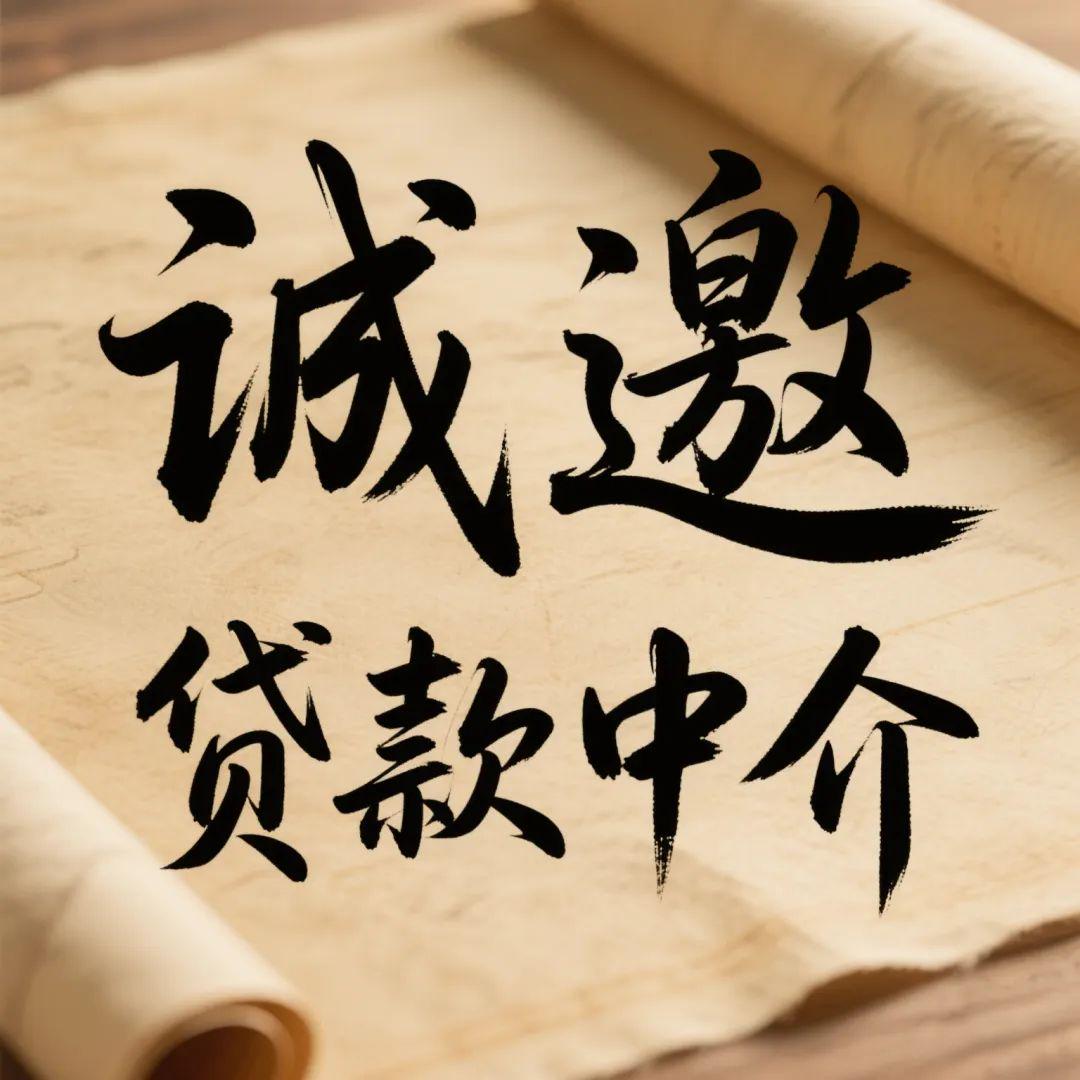 诚邀
贷款中介